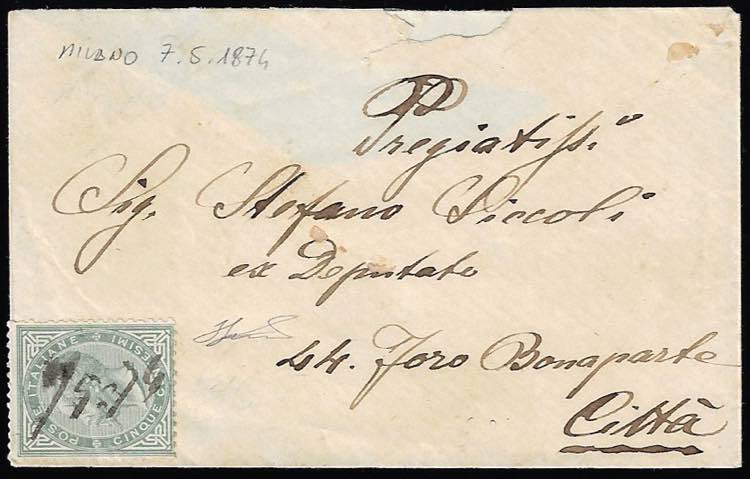 MILANO 7.5.1874
Pregiatissi°
Sig. Stefano Piccoli
ex Deputato
44. Foro Bonaparte
Città
POSTE ITALIANE
CINQUE CENTESIMI